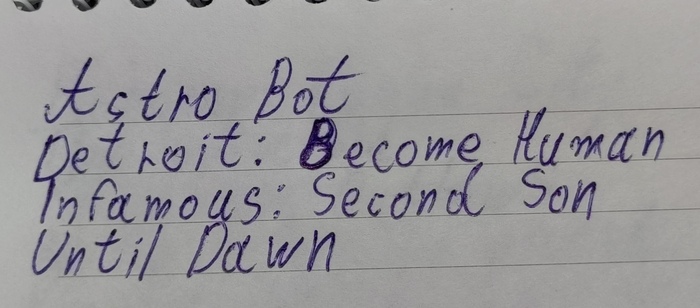 Astro Bot
Detroit: Become Human
Infamous: Second Son
Until Dawn